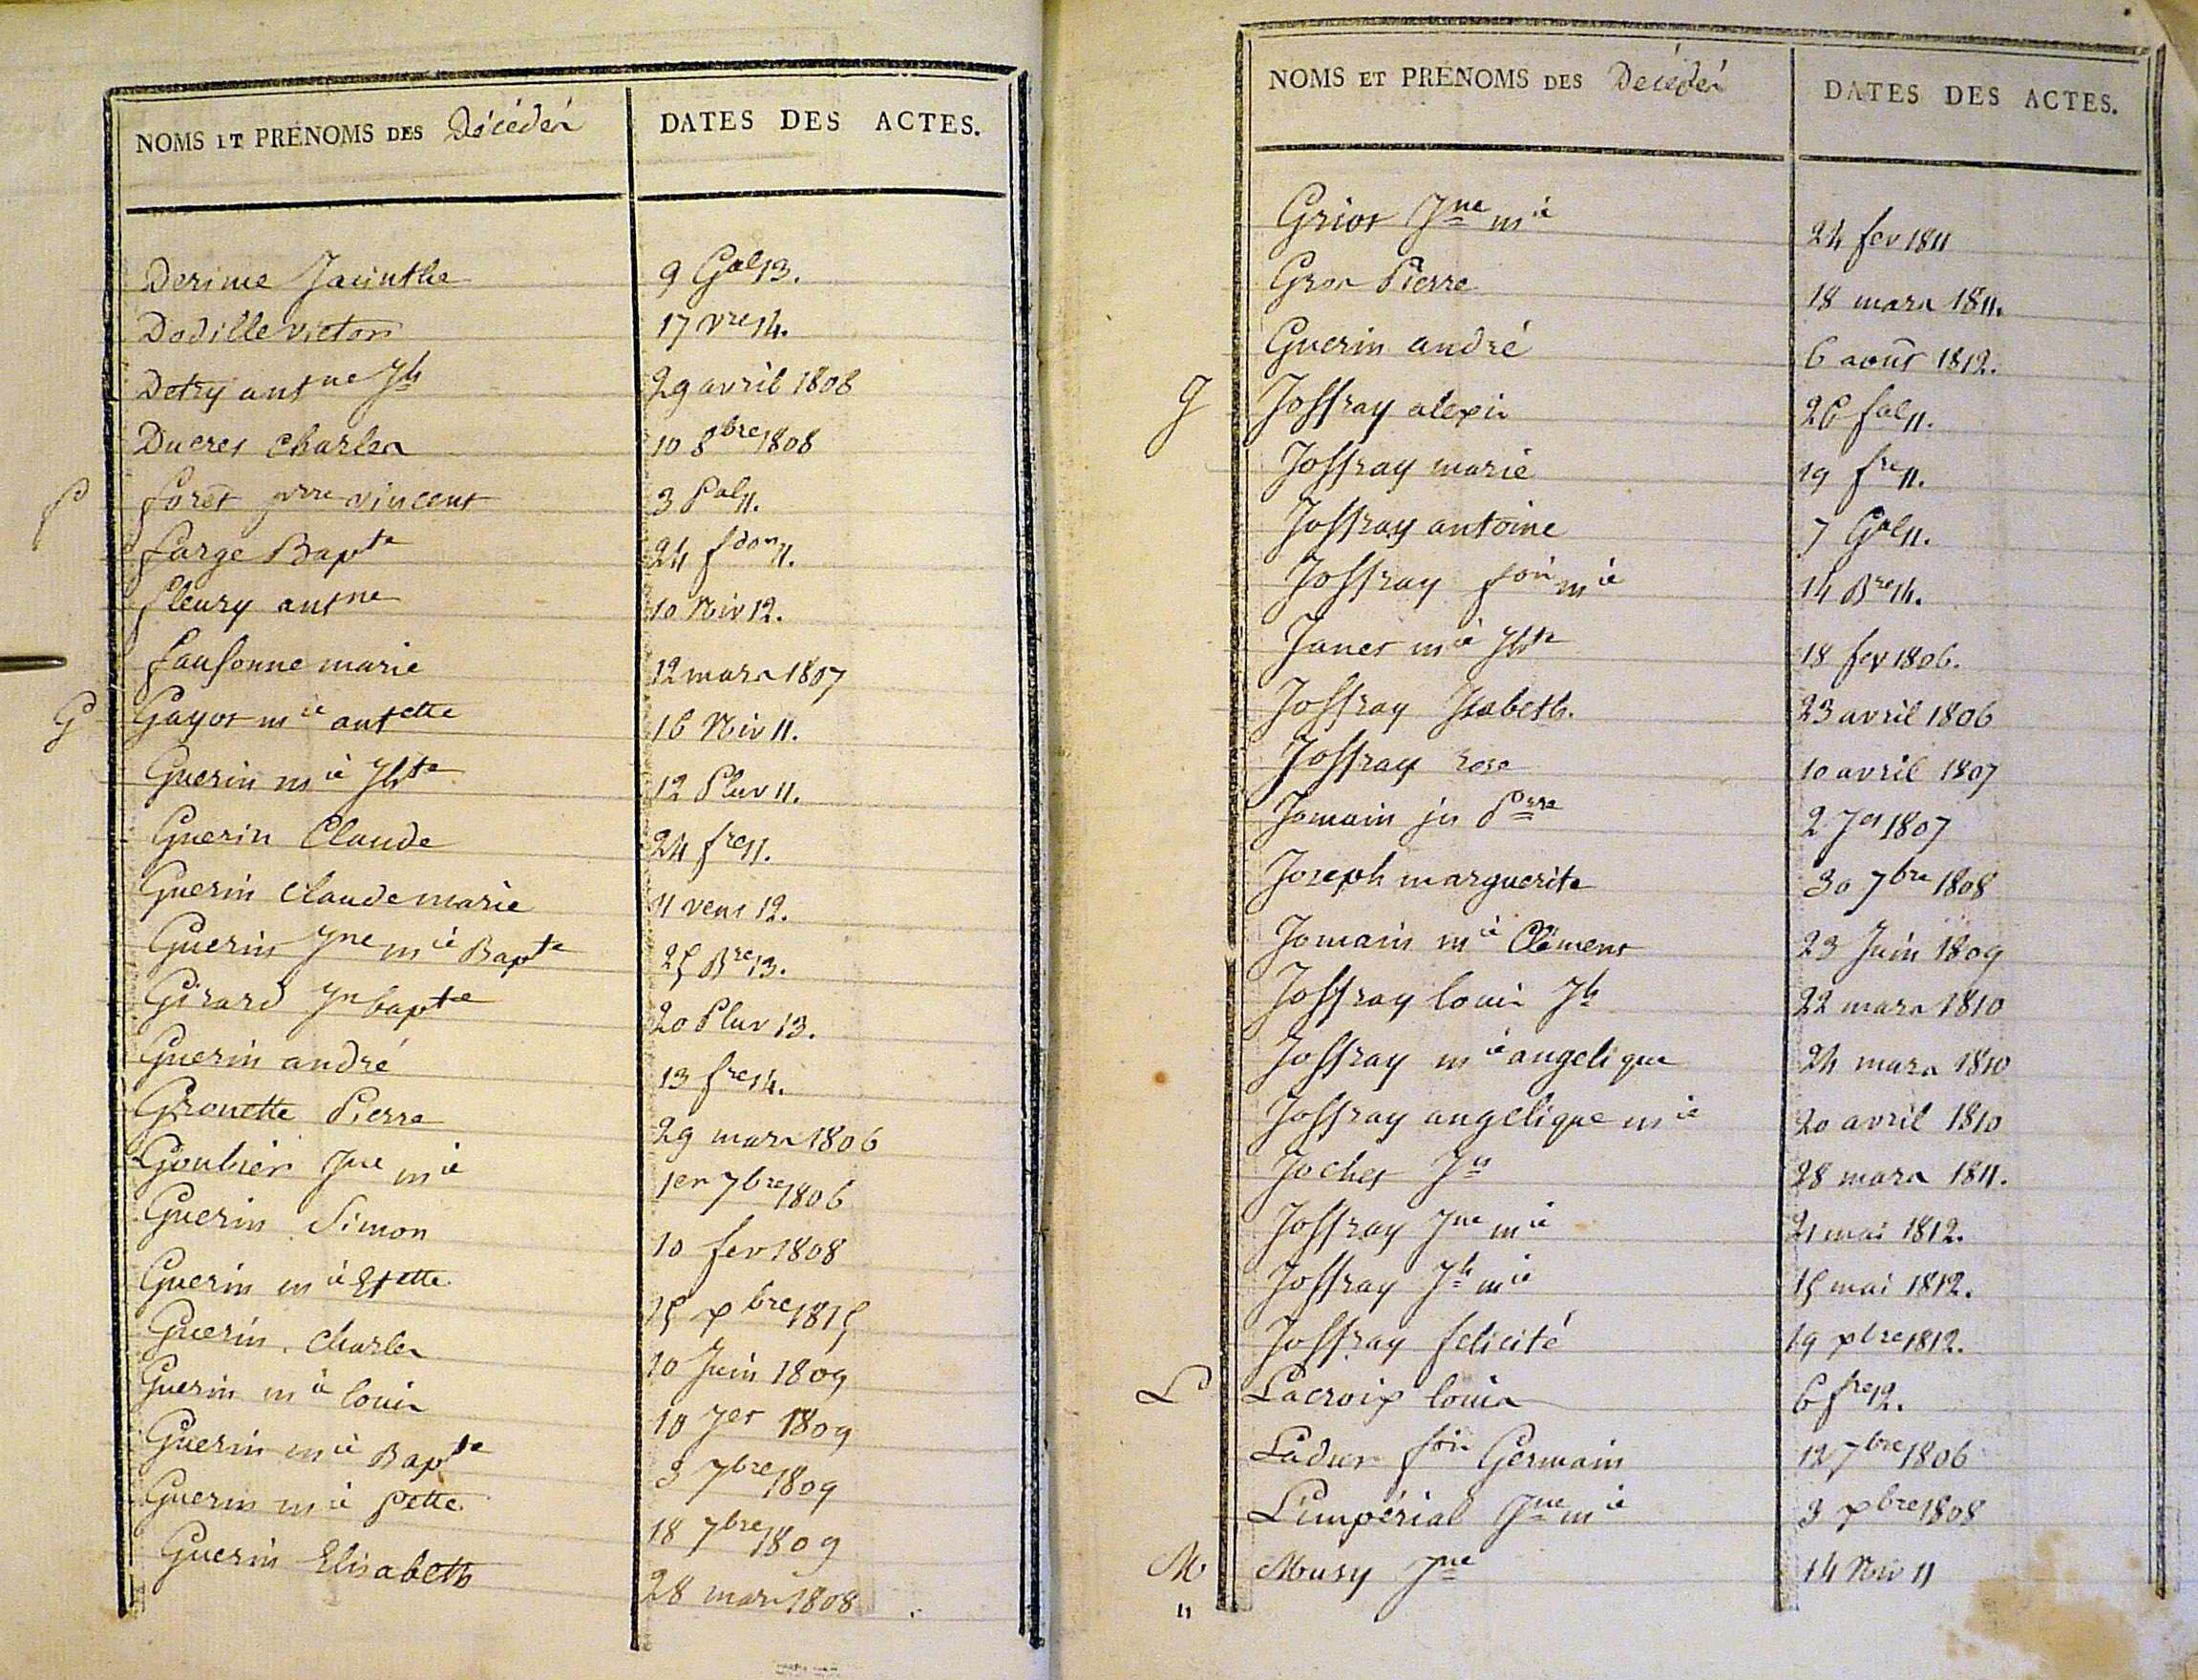 NOMS ET PRÉNOMS DES Décédés DATES DES ACTES.
Derime Jacinthe 9 Gal 13.
Dodille victor 17 Vre 14.
Detry antne Jh 29 avril 1808
Ducret Charles 10 8bre 1808
F foret pierre vincent 3 Pal 11.
farge Bapte 24 fdor 11.
fleury antne 10 Niv 12.
fausonne marie 12 mars 1807
G Gayot mie antette 16 Niv 11.
Guerin mie Jhte 12 Pluv 11.
Guerin Claude 24 fre 11.
Guerin Claude marie 11 vent 12.
Guerin Jne mie Bapte 25 Bre 13.
Girard Jn bapte 20 Pluv 13.
Guerin andré 13 fre 14.
Gronette Pierre 29 mars 1806
Goubier Jne mie 1er 7bre 1806
Guerin Simon 10 fev 1808
Guerin mie Etette 15 xbre 1815
Guerin Charles 10 Juin 1809
Guerin mie louis 10 Jer 1809
Guerin mie Bapte 3 7bre 1809
Guerin mie Pette 18 7bre 1809
Guerin Elisabeth 28 mars 1808
NOMS ET PRÉNOMS DES Décédés DATES DES ACTES.
Griot Jne mie 24 fev 1811
Gros Pierre 18 mars 1811.
Guerin andré 6 août 1812.
J Joffray alexis 26 fal 11.
Joffray marie 19 fre 11.
Joffray antoine 7 Gal 11.
Joffray fois mie 14 Bre 14.
Janet mie Jhte 18 fev 1806.
Joffray Isabeth. 23 avril 1806
Joffray rose 10 avril 1807
Jomain jn Pierre 2 Jer 1807
Joseph marguerite 30 7bre 1808
Jomain mie Clément 23 Juin 1809
Joffray louis Jh 22 mars 1810
Joffray mie angelique 24 mars 1810
Joffray angelique mie 20 avril 1810
Jochet Jn 28 mars 1811.
Joffray Jne mie 21 mai 1812.
Joffray Jh mie 15 mai 1812.
Joffray felicité 19 xbre 1812.
L Lacroix louis 6 fre 12.
Ladret fois Germain 12 7bre 1806
L'impérial Jne mie 3 xbre 1808
M Musy Jne 14 Niv 11
"